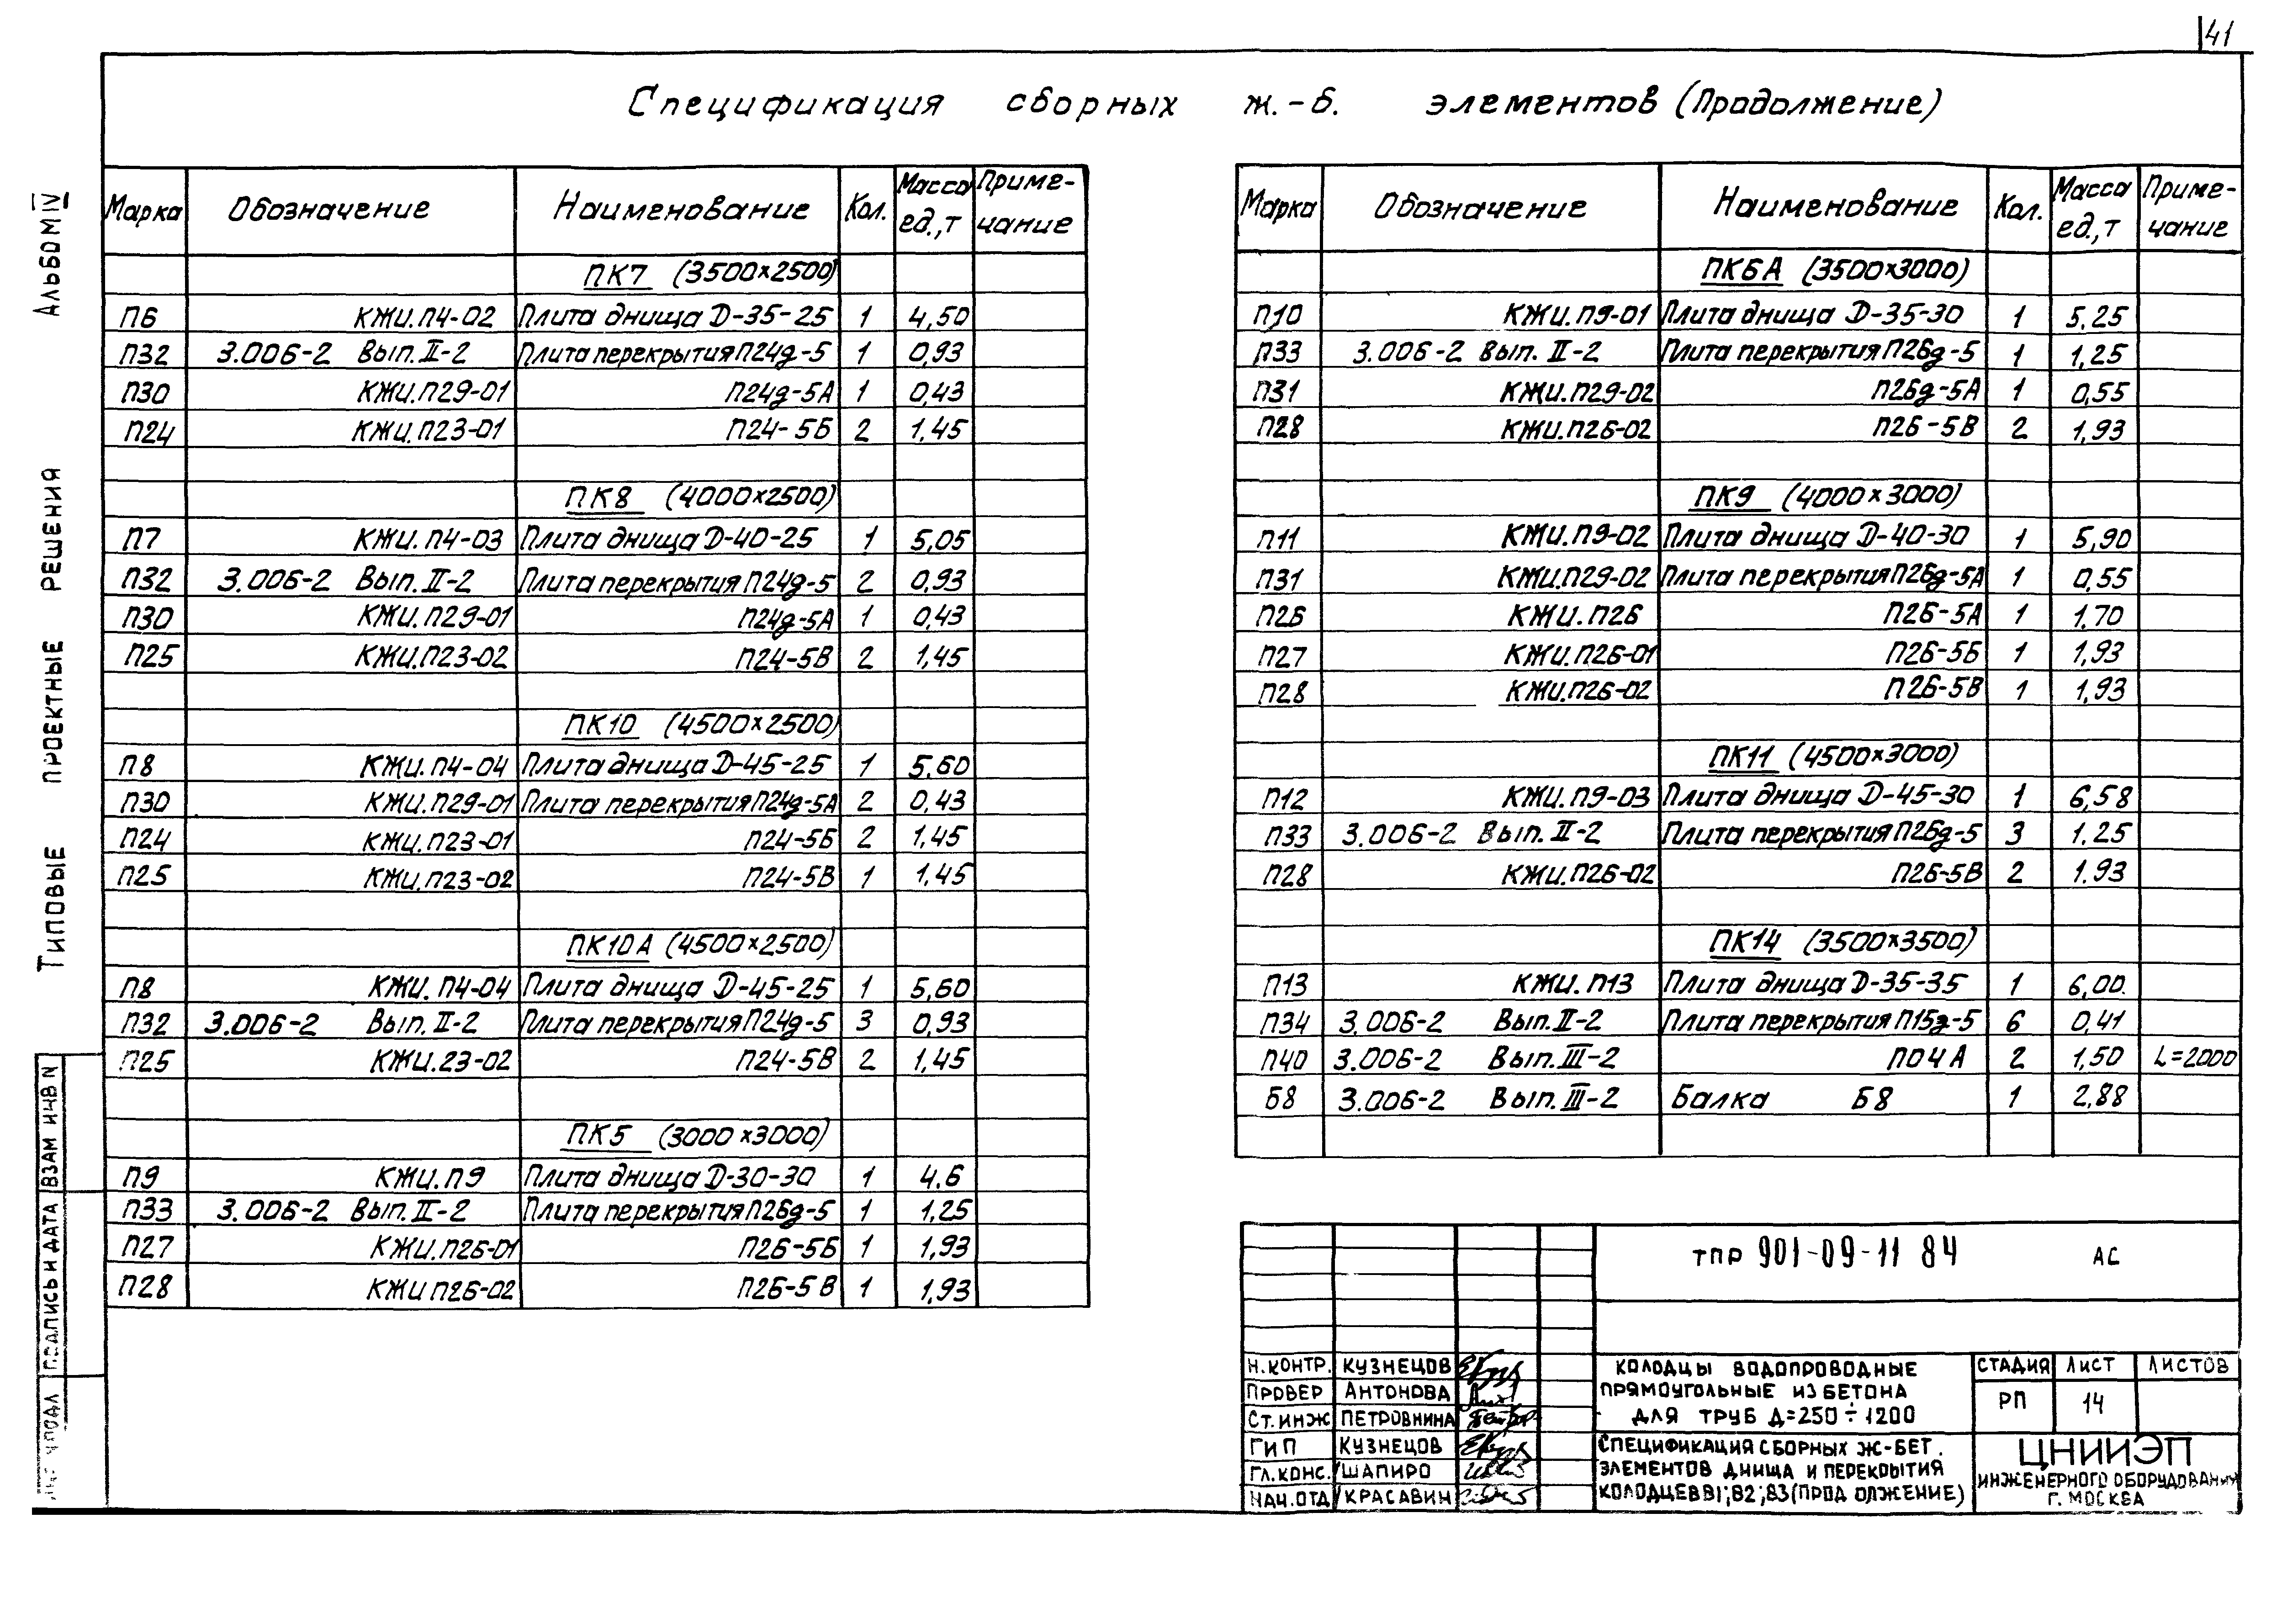 41
Спецификация сборных ж.-б. элементов (Продолжение)
Альбом IV
Типовые проектные решения
Марка Обозначение Наименование Кол. Масса ед.,т Приме-чание
ПК7 (3500×2500)
П6 КЖИ.П4-02 Плита днища Д-35-25 1 4,50
П32 3.006-2 Вып. II-2 Плита перекрытия П24д-5 1 0,93
П30 КЖИ.П29-01 П24д-5А 1 0,43
П24 КЖИ.П23-01 П24-5Б 2 1,45
ПК8 (4000×2500)
П7 КЖИ.П4-03 Плита днища Д-40-25 1 5,05
П32 3.006-2 Вып. II-2 Плита перекрытия П24д-5 2 0,93
П30 КЖИ.П29-01 П24д-5А 1 0,43
П25 КЖИ.П23-02 П24-5В 2 1,45
ПК10 (4500×2500)
П8 КЖИ.П4-04 Плита днища Д-45-25 1 5,60
П30 КЖИ.П29-01 Плита перекрытия П24д-5А 2 0,43
П24 КЖИ.П23-01 П24-5Б 2 1,45
П25 КЖИ.П23-02 П24-5В 1 1,45
ПК10А (4500×2500)
П8 КЖИ.П4-04 Плита днища Д-45-25 1 5,60
П32 3.006-2 Вып. II-2 Плита перекрытия П24д-5 3 0,93
П25 КЖИ.23-02 П24-5В 2 1,45
ПК5 (3000×3000)
П9 КЖИ.П9 Плита днища Д-30-30 1 4.6
П33 3.006-2 Вып. II-2 Плита перекрытия П26д-5 1 1,25
П27 КЖИ.П26-01 П26-5Б 1 1,93
П28 КЖИ П26-02 П26-5В 1 1,93
Марка Обозначение Наименование Кол. Масса ед.,т Приме-чание
ПК6А (3500×3000)
П10 КЖИ.П9-01 Плита днища Д-35-30 1 5,25
П33 3.006-2 Вып. II-2 Плита перекрытия П26д-5 1 1,25
П31 КЖИ.П29-02 П26д-5А 1 0,55
П28 КЖИ.П26-02 П26-5В 2 1,93
ПК9 (4000×3000)
П11 КЖИ.П9-02 Плита днища Д-40-30 1 5,90
П31 КЖИ.П29-02 Плита перекрытия П26д-5А 1 0,55
П26 КЖИ.П26 П26-5А 1 1,70
П27 КЖИ.П26-01 П26-5Б 1 1,93
П28 КЖИ.П26-02 П26-5В 1 1,93
ПК11 (4500×3000)
П12 КЖИ.П9-03 Плита днища Д-45-30 1 6,58
П33 3.006-2 Вып. II-2 Плита перекрытия П26д-5 3 1.25
П28 КЖИ.П26-02 П26-5В 2 1.93
ПК14 (3500×3500)
П13 КЖИ.П13 Плита днища Д-35-35 1 6,00
П34 3.006-2 Вып. II-2 Плита перекрытия П15д-5 6 0,41
П40 3.006-2 Вып. III-2 ПО4А 2 1,50 L=2000
Б8 3.006-2 Вып. III-2 Балка Б8 1 2,88
ТПР 901-09-11 84 АС
Н.КОНТР. КУЗНЕЦОВ
ПРОВЕР АНТОНОВА
СТ.ИНЖ ПЕТРОВНИНА
ГИП КУЗНЕЦОВ
ГЛ.КОНС. ШАПИРО
НАЧ.ОТД КРАСАВИН
КОЛОДЦЫ ВОДОПРОВОДНЫЕ
ПРЯМОУГОЛЬНЫЕ ИЗ БЕТОНА
ДЛЯ ТРУБ Д=250÷1200
СТАДИЯ ЛИСТ ЛИСТОВ
РП 14
СПЕЦИФИКАЦИЯ СБОРНЫХ Ж-БЕТ.
ЭЛЕМЕНТОВ ДНИЩА И ПЕРЕКРЫТИЯ
КОЛОДЦЕВ В1; В2; В3 (ПРОДОЛЖЕНИЕ)
ЦНИИЭП
ИНЖЕНЕРНОГО ОБОРУДОВАНИЯ
Г. МОСКВА
ВЗАМ ИНВ N
ПОДПИСЬ И ДАТА